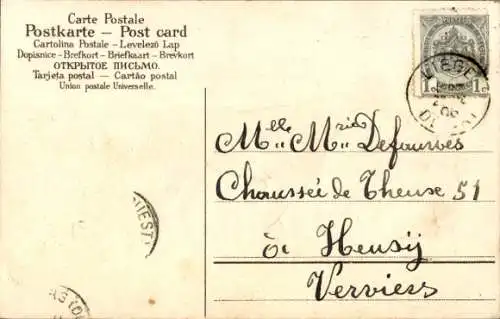 Carte Postale
Postkarte – Post card
Cartolina Postale – Levelező Lap
Dopisnice – Brefkort – Briefkaart – Brevkort
ОТКРЫТОЕ ПИСЬМО.
Tarjeta postal – Cartão postal
Union postale Universelle.
1 1
LIEGE
06
Mlle Maria Defourves
Chaussée de Theuse 51
à Heusij
Verviers